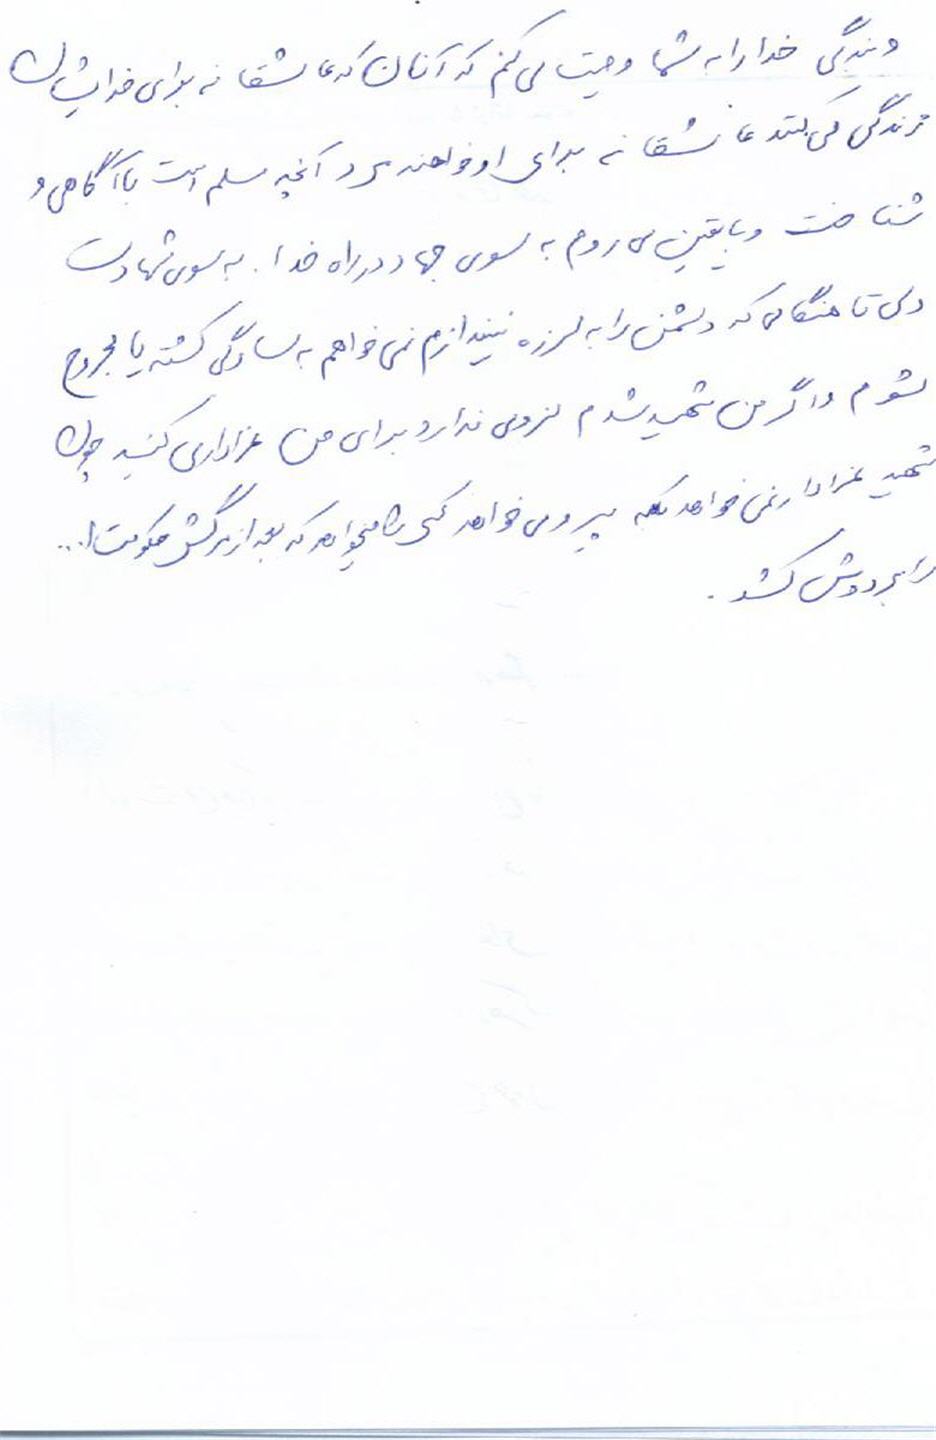 و بندگی خدا را به شما وصیت می کنم که آنان که عاشقانه برای خدایشان
زندگی می کنند عاشقانه برای او خواهند مرد آنچه مسلم است با آگاهی و
شناخت و با یقین می روم به سوی جهاد در راه خدا. به سوی شهادت
ولی تا هنگامی که دشمن را به لرزه نیندازم نمی خواهم به سادگی کشته یا مجروح
شوم و اگر من شهید شدم لزومی ندارد برای من عزاداری کنید چون
شهید عزادار نمی خواهد بلکه پیرو می خواهد کسی را میخواهد که بعد از مرگش حکومت ا...
را بر دوش کشد.